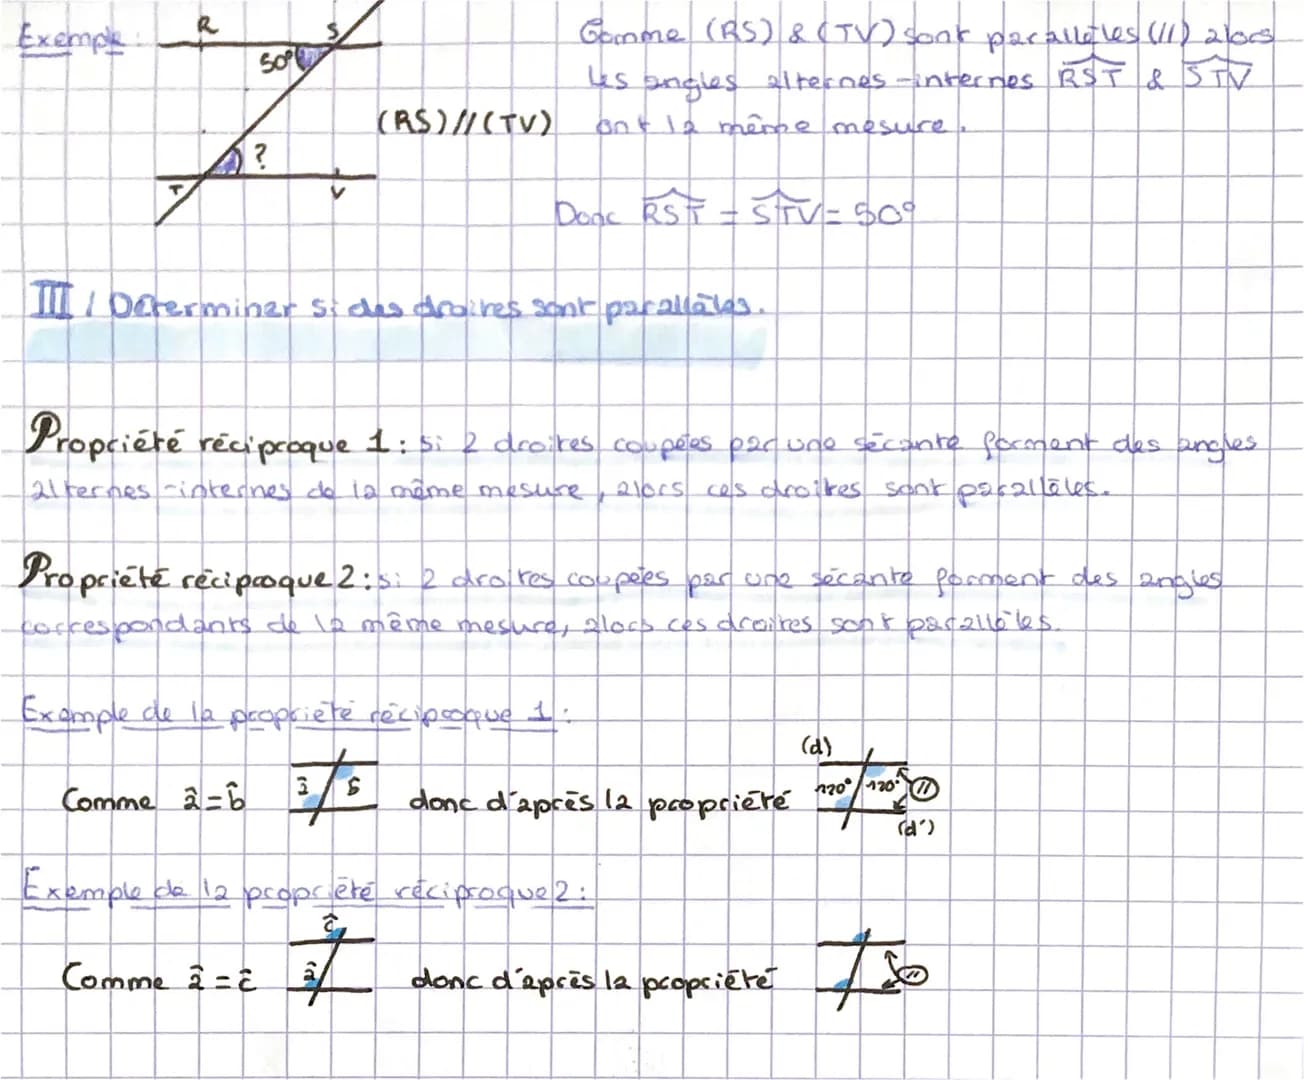 Exemple : R S
50°
Comme (RS) & (TV) sont parallèles (//) alors
les angles alternes-internes RST & STV
(RS)//(TV) ont la même mesure.
?
T V
Donc RST = STV = 50°
III / Determiner si des droites sont parallèles.
Propriété réciproque 1 : si 2 droites coupées par une sécante forment des angles
alternes-internes de la même mesure, alors ces droites sont parallèles.
Propriété réciproque 2 : si 2 droites coupées par une sécante forment des angles
correspondants de la même mesure, alors ces droites sont parallèles.
Exemple de la propriété réciproque 1 :
Comme â = b̂ â b̂ donc d'après la propriété (d) 120° 120° // (d')
Exemple de la propriété réciproque 2 :
Comme â = ĉ ĉ â donc d'après la propriété //